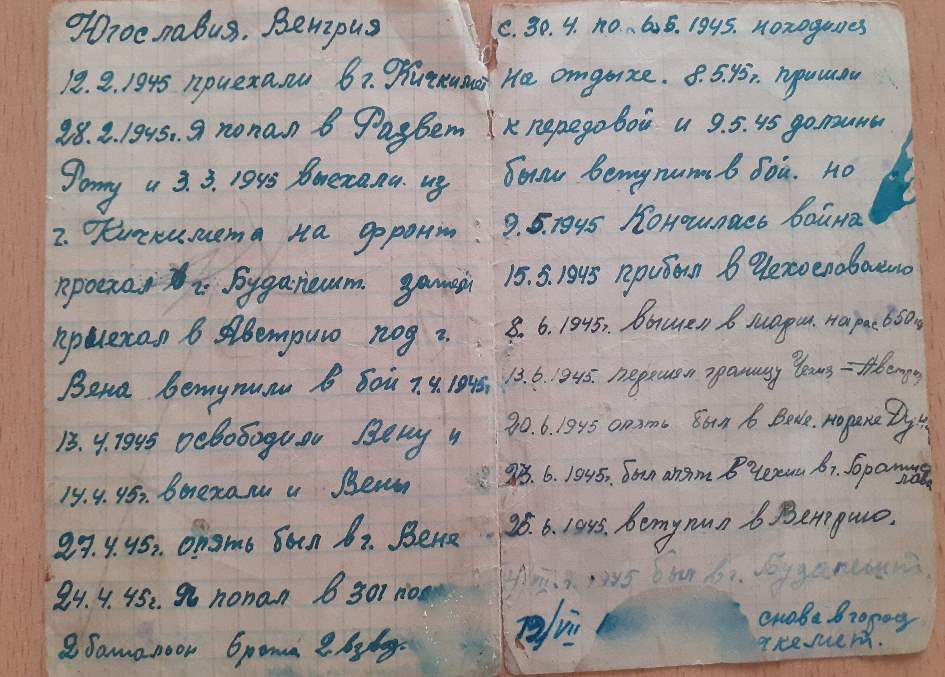 Югославия. Венгрия
12.2.1945 приехали в г. Кичкимет
28.2.1945г. Я попал в Развет
Роту и 3.3.1945 выехали из
г. Кичкимета на фронт
проехал в г. Будапешт. затем
приехал в Австрию под г.
Вена вступили в бой 7.4.1945г
13.4.1945 освободили Вену и
14.4.45г. выехали и Вены
27.4.45г. опять был в г. Вене
24.4.45г. Я попал в 301 полк
2 батальон 6 рота 2 взвод.
с. 30.4. по 5. 1945. находился
на отдыхе. 8.5.45г. пришли
к передовой и 9.5.45 должны
были вступить в бой. но
9.5.1945 Кончилась война
15.5.1945 прибыл в Чехословакию
8.6.1945г. вышел в марш. на рас. 650
13.6.1945. перешел границу Чехия = Австрия
20.6.1945 опять был в Вене. на реке
23.6.1945г. был опят в Чехии в г. Братис
лава
25.6.1945. вступил в Венгрию.
1945 был в г. Будапешт.
12/VII снова в город
чкемет.